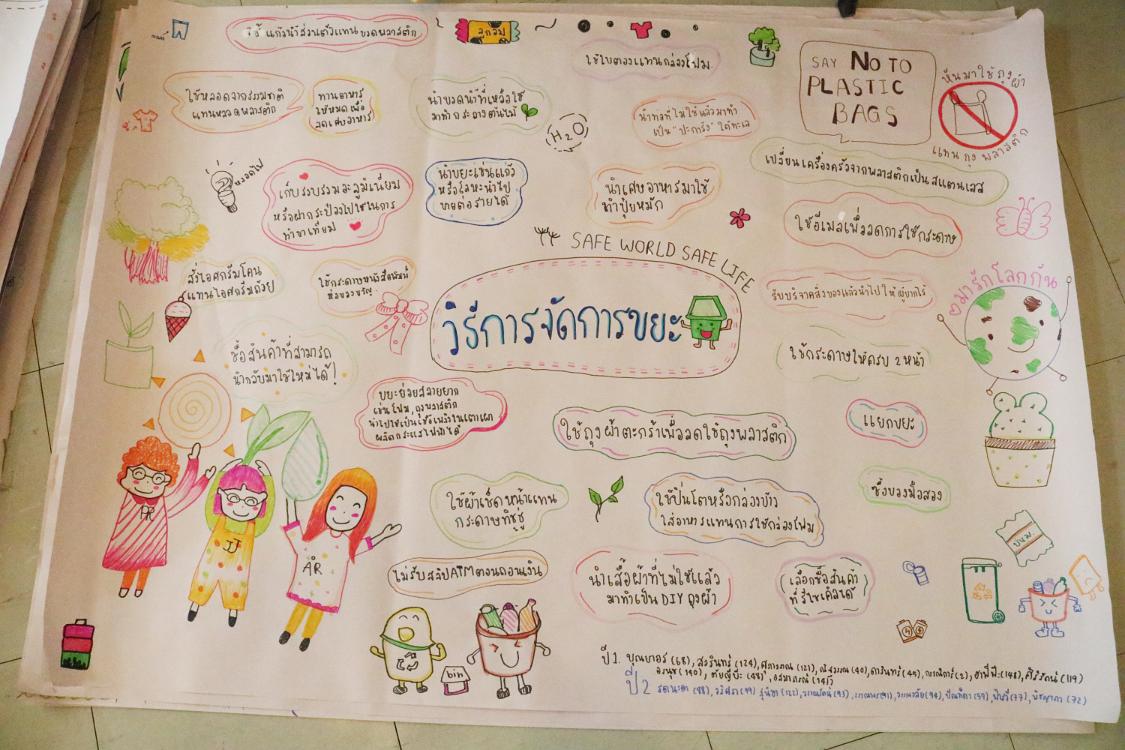 ใช้แก้วน้ำส่วนตัวแทนขวดพลาสติก
ลูกอม
ใช้ใบตองแทนกล่องโฟม
SAY NO TO
PLASTIC
BAGS
หันมาใช้ถุงผ้า
แทนถุงพลาสติก
ใช้หลอดจากธรรมชาติ
แทนหลอดพลาสติก
ทานอาหาร
ให้หมดเพื่อ
ลดเศษอาหาร
นำขวดน้ำที่เหลือใช้
มาทำกระถางต้นไม้
H2O
เป็น "ปะการัง" ใต้ทะเล
เปลี่ยนเครื่องครัวจากพลาสติกเป็นสแตนเลส
หลอดไฟ
เก็บรวบรวมอะลูมิเนียม
หรือฝากระป๋องไปใช้ในการ
ทำขาเทียม
นำขยะเช่นแก้ว
หรือโลหะนำไป
ขายต่อรายได้
นำเศษอาหารมาใช้
ทำปุ๋ยหมัก
ใช้อีเมลเพื่อลดการใช้กระดาษ
SAFE WORLD SAFE LIFE
สั่งไอศกรีมโคน
แทนไอศกรีมถ้วย
ใช้กระดาษหนังสือพิมพ์
ห่อของขวัญ
วิธีการจัดการขยะ
รับบริจาคสิ่งของแล้วนำไปให้ผู้ยากไร้
มารักโลกกัน
ซื้อสินค้าที่สามารถ
นำกลับมาใช้ใหม่ได้!
ใช้กระดาษให้ครบ 2 หน้า
ขยะย่อยสลายยาก
เช่นโฟม, ถุงพลาสติก
นำไปใช้เป็นเชื้อเพลิงในเตาเผา
ผลิตกระแสไฟฟ้าได้
ใช้ถุงผ้าตะกร้าเพื่อลดใช้ถุงพลาสติก
แยกขยะ
ใช้ผ้าเช็ดหน้าแทน
กระดาษทิชชู่
ใช้ปิ่นโตหรือกล่องข้าว
ใส่อาหารแทนการใช้กล่องโฟม
ซื้อของมือสอง
PR
JJ
AR
ไม่รับสลิปATMตอนถอนเงิน
นำเสื้อผ้าที่ไม่ใช้แล้ว
มาทำเป็น DIY ถุงผ้า
เลือกซื้อสินค้า
ที่รีไซเคิลได้
ขนม
bin
ปี 1
ปี 2